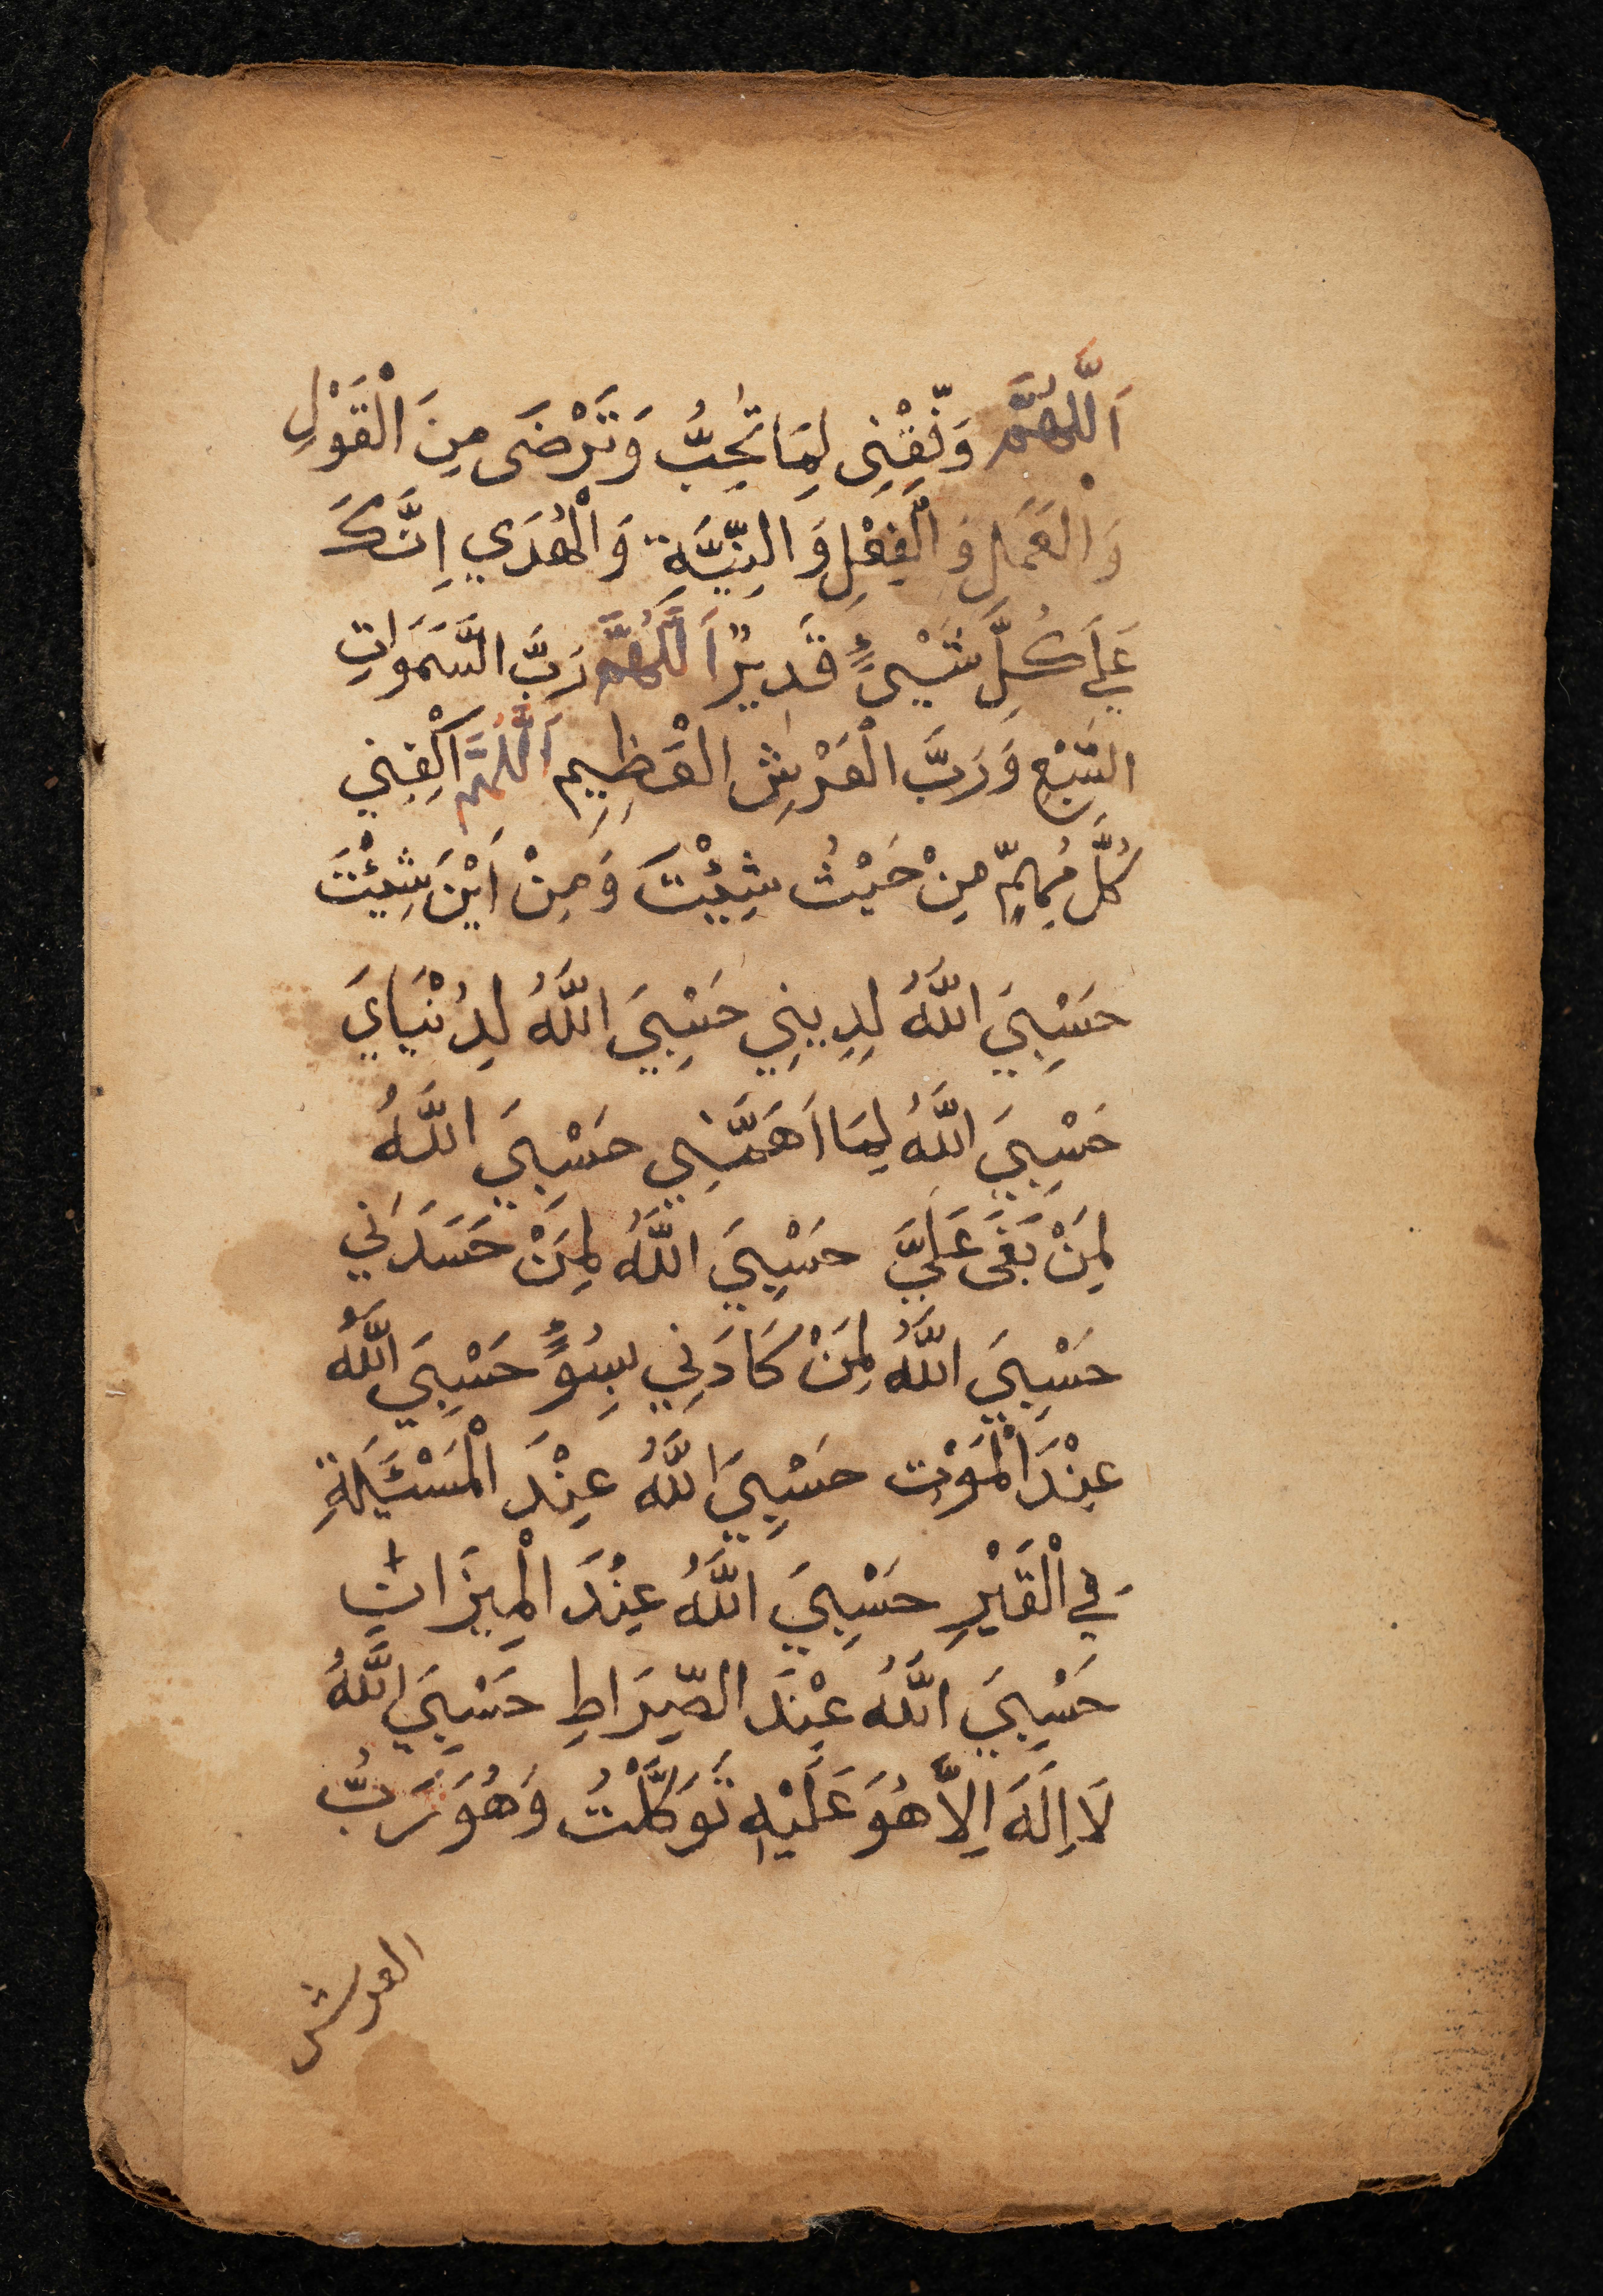 اَللّٰهُمَّ وَفِّقْنِى لِمَا تُحِبُّ وَتَرْضَى مِنَ الْقَوْلِ
وَالْعَمَلِ وَالْفِعْلِ وَالنِّيَّةِ وَالْهُدَي اِنَّكَ
عَلَي كُلِّ شَيْئٍ قَدِيرٌ اَللّٰهُمَّ رَبَّ السَّمَوَاتِ
السَّبْعِ وَرَبَّ الْعَرْشِ الْعَظِيمِ اَللّٰهُمَّ اَكْفِنِي
كُلَّ مُهِمٍّ مِنْ حَيْثُ شِئْتَ وَمِنْ اَيْنَ شِئْتَ
حَسْبِيَ اللَّهُ لِدِينِي حَسْبِيَ اللَّهُ لِدُنْيَايَ
حَسْبِيَ اللَّهُ لِمَا اَهَمَّنِي حَسْبِيَ اللَّهُ
لِمَنْ بَغَى عَلَيَّ حَسْبِيَ اللَّهُ لِمَنْ حَسَدَنِي
حَسْبِيَ اللَّهُ لِمَنْ كَادَنِي بِسُوءٍ حَسْبِيَ اللَّهُ
عِنْدَ الْمَوْتِ حَسْبِيَ اللَّهُ عِنْدَ الْمَسْئَلَةِ
فِي الْقَبْرِ حَسْبِيَ اللَّهُ عِنْدَ الْمِيزَانِ
حَسْبِيَ اللَّهُ عِنْدَ الصِّرَاطِ حَسْبِيَ اللَّهُ
لَا اِلَهَ اِلاَّ هُوَ عَلَيْهِ تَوَكَّلْتُ وَهُوَ رَبُّ
العرش